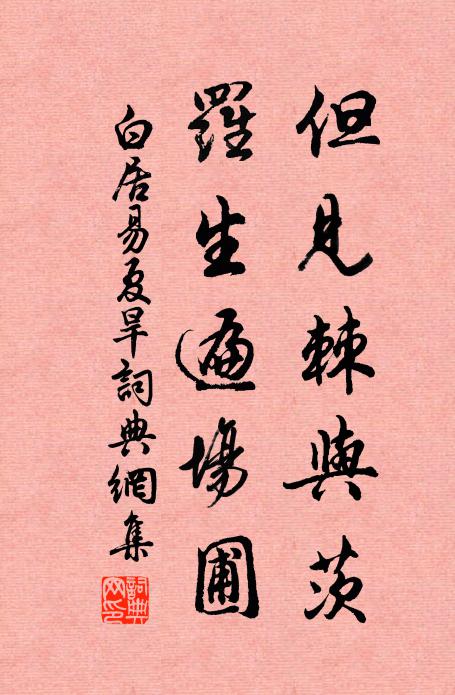 但見棘與茨
羅生遍場圃
白居易夏旱詞典網集
詞典網印